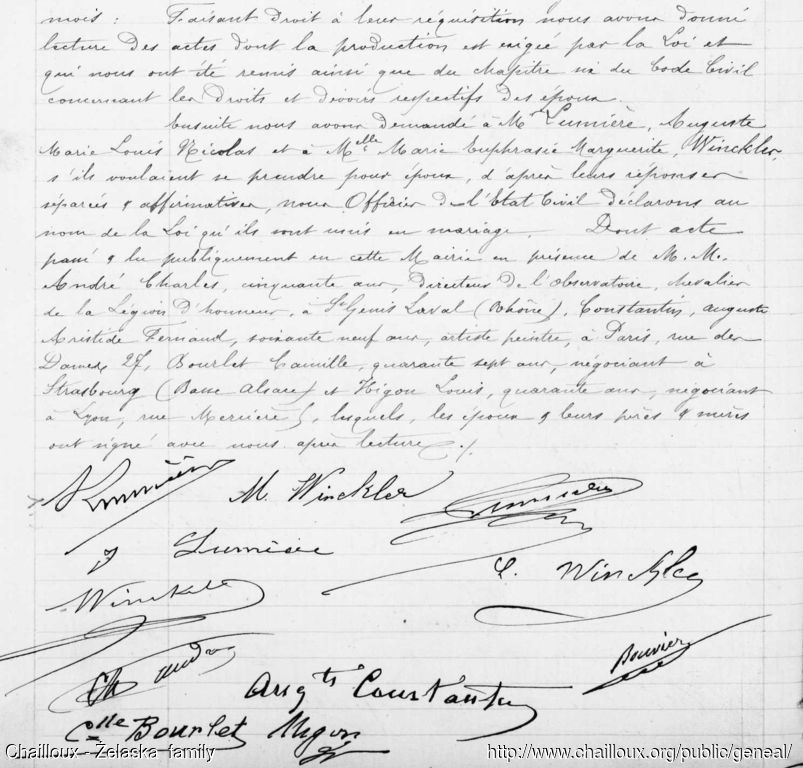 mois : Faisant droit à leur réquisition nous avons donné
lecture des actes dont la production est exigée par la Loi et
qui nous ont été remis ainsi que du chapitre VI du Code Civil
concernant les droits et devoirs respectifs des époux.
Ensuite nous avons demandé à Mr Lumière, Auguste
Marie Louis Nicolas et à Melle Marie Euphrasie Marguerite, Winckler,
s'ils voulaient se prendre pour époux, d'après leurs réponses
séparées & affirmatives, nous Officier de l'Etat Civil déclarons au
nom de la Loi qu'ils sont unis en mariage. Dont acte
passé & lu publiquement en cette Mairie en présence de M. M.
André Charles, cinquante ans, directeur de l'observatoire, chevalier
de la Légion d'honneur, à St Genis Laval (Rhône), Constantin, Auguste
Aristide Fernand, soixante neuf ans, artiste peintre, à Paris, rue des
Dames 27, Bourlet Camille, quarante sept ans, négociant à
Strasbourg (Basse Alsace) et Higon Louis, quarante ans, négociant
à Lyon, rue Mercière 5, lesquels, les époux & leurs pères & mères
ont signé avec nous après lecture ./.
Lumière M. Winckler Lumière
J Lumière
L. Winckler
Winckler
Bouvier
Ch André
Augte Constantin
Cile Bourlet Higon
Chailloux - Żelaska family http://www.chailloux.org/public/geneal/